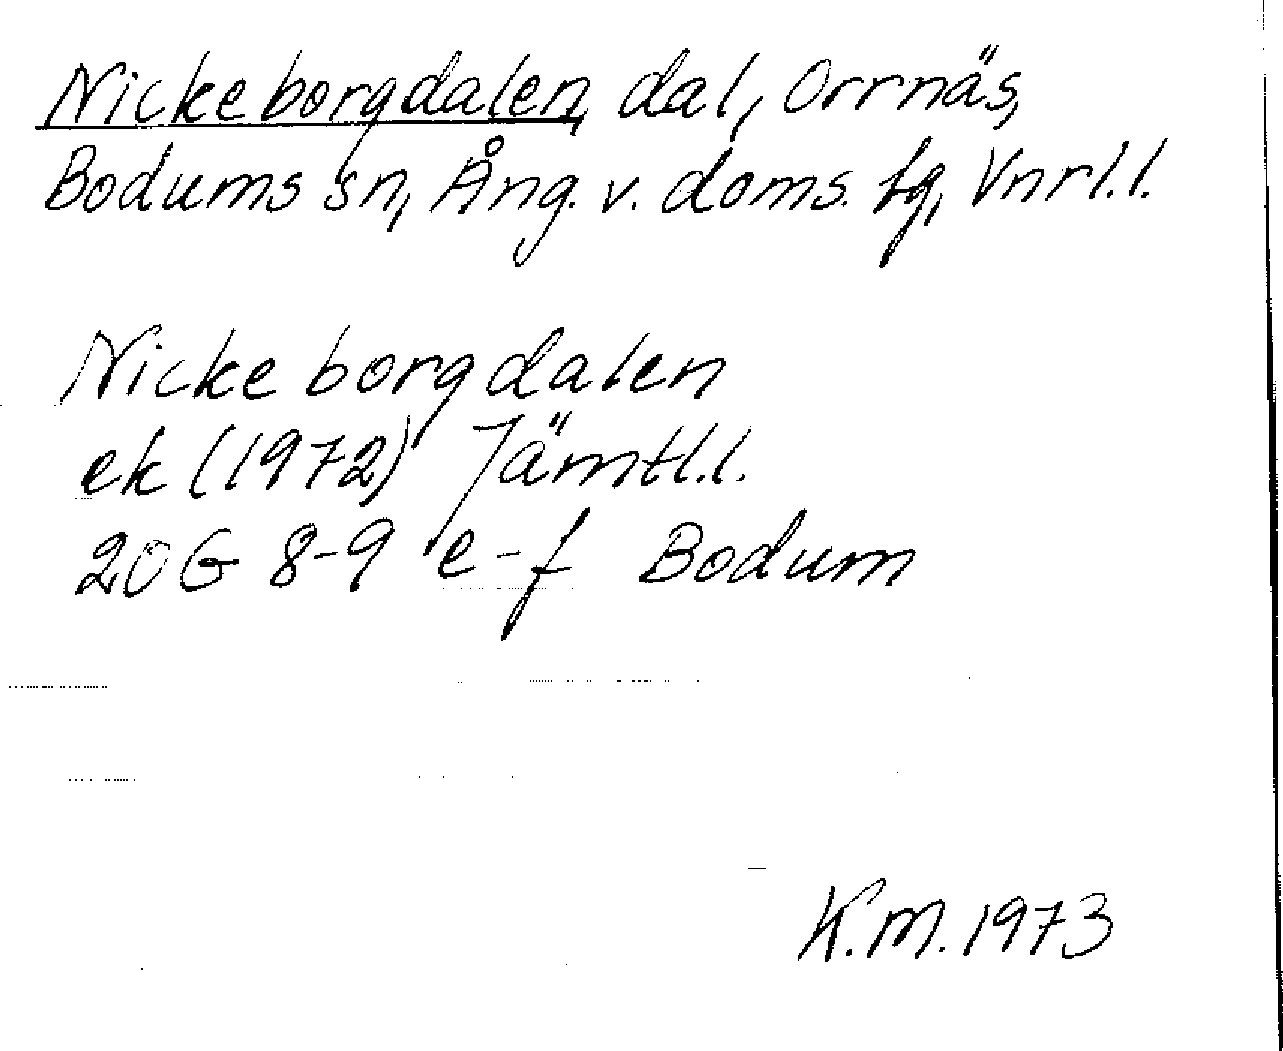 Nickeborgdalen, dal, Orrnäs,
Bodums sn, Ång. v. doms. tg, Vnrl.l.
Nickeborgdalen
ek (1972) Jämtl.l.
20G 8-9 e-f Bodum
K.M. 1973